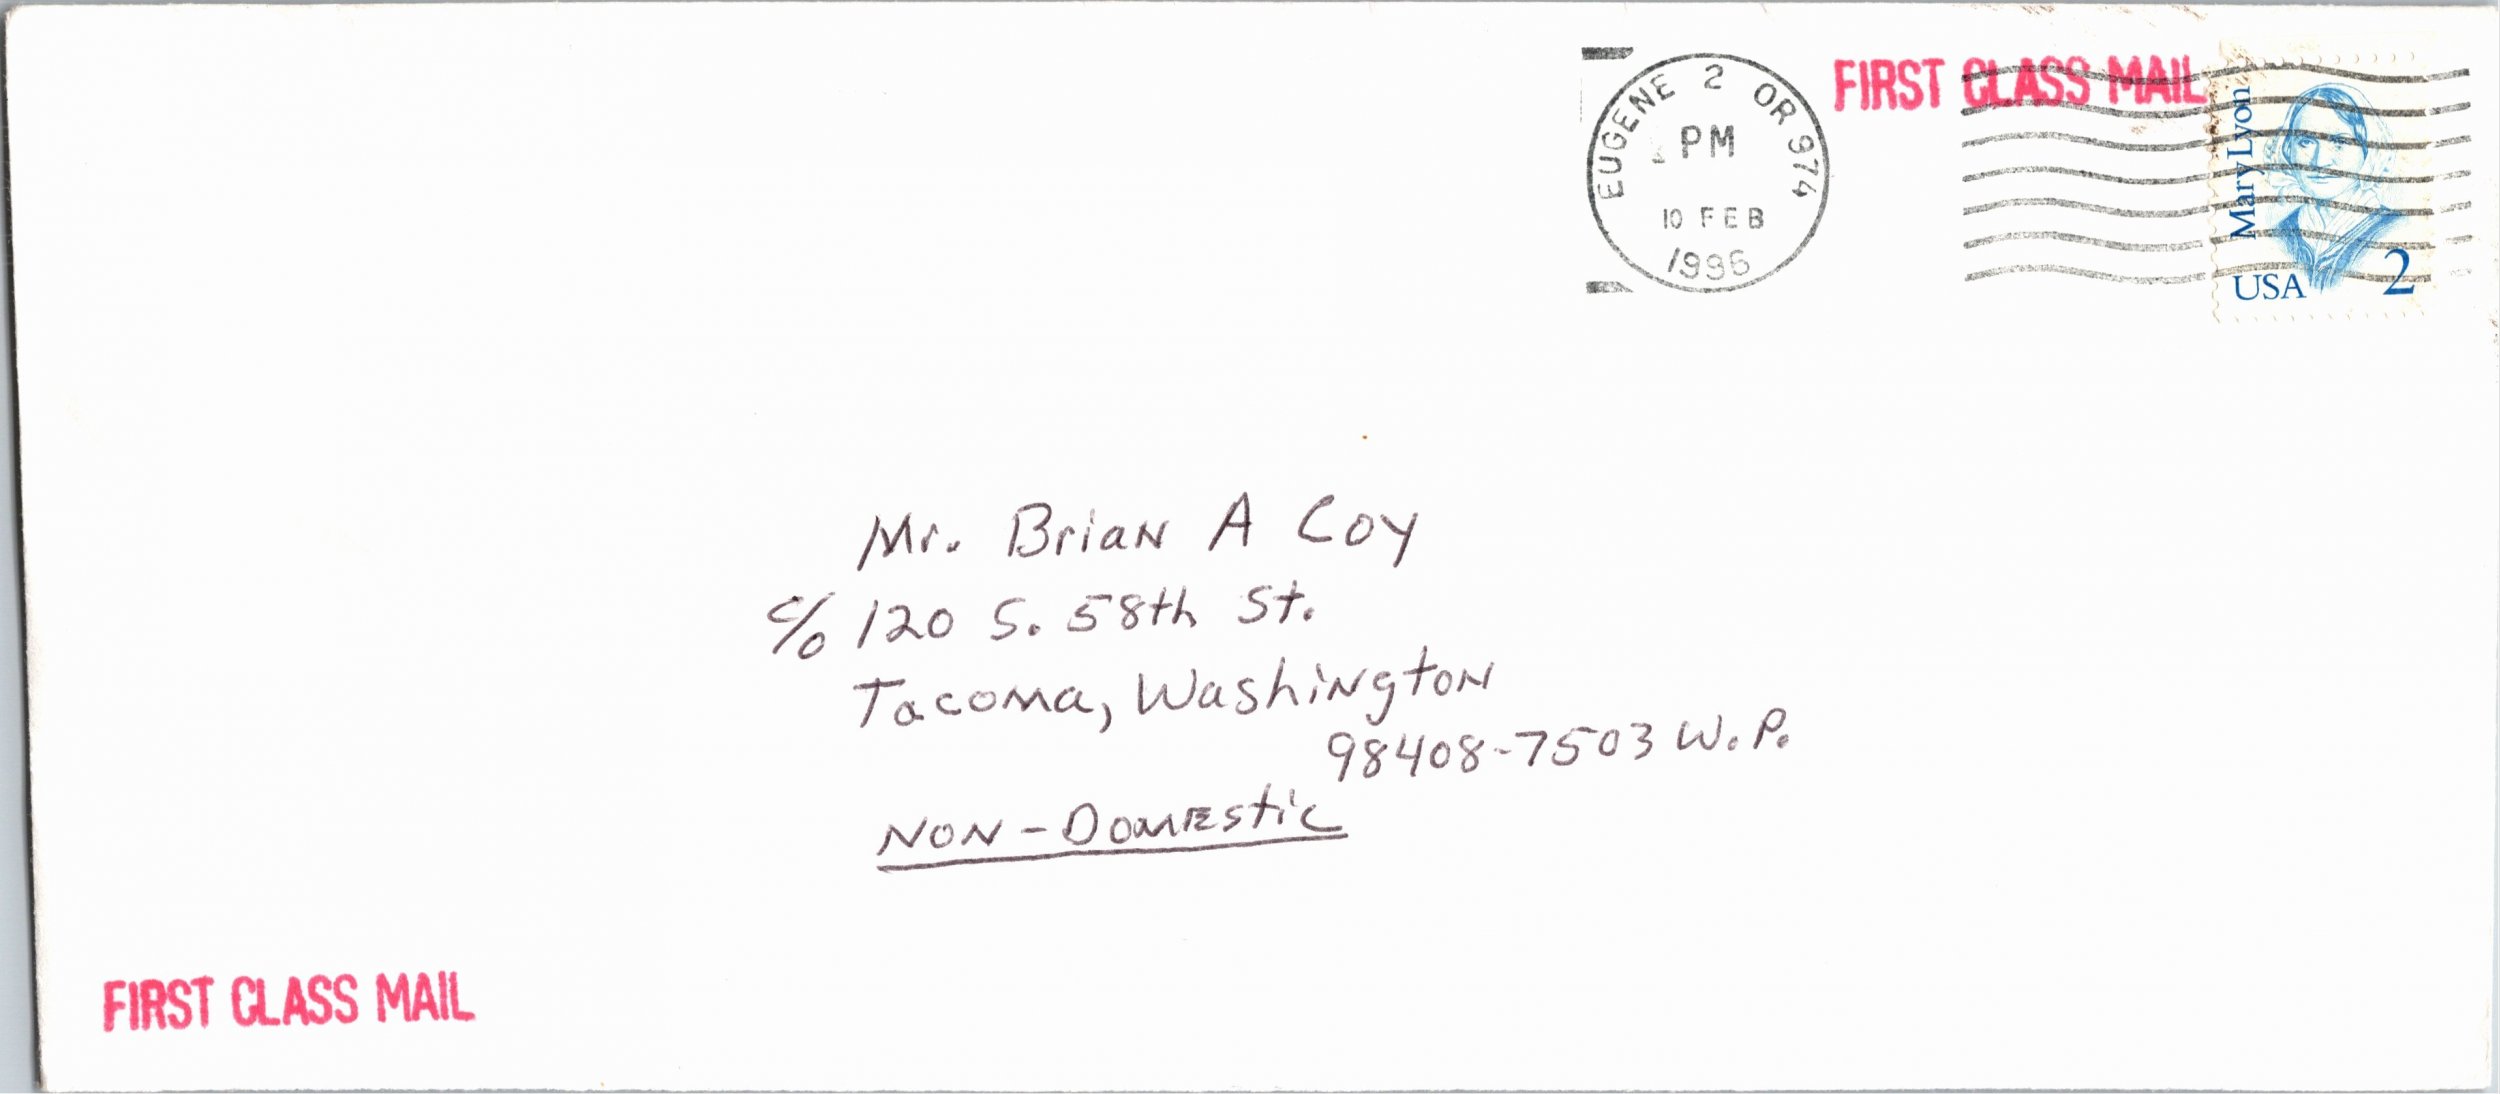 FIRST CLASS MAIL
EUGENE 2 OR 974
PM
10 FEB
1996
Mary Lyon
USA 2
Mr. Brian A Coy
c/o 120 S. 58th St.
Tacoma, Washington
98408-7503 W.P.
NON-Domestic
FIRST CLASS MAIL